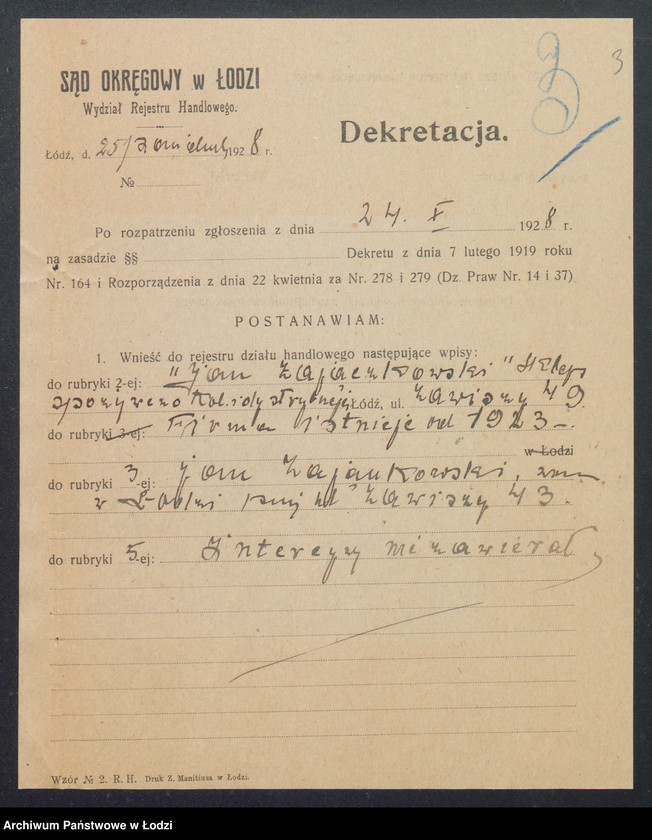 3
SĄD OKRĘGOWY w ŁODZI
Wydział Rejestru Handlowego.
Dekretacja.
Łódź, d. 25/ 1928 r.
№
Po rozpatrzeniu zgłoszenia z dnia 24. X 1928 r.
na zasadzie §§ Dekretu z dnia 7 lutego 1919 roku
Nr. 164 i Rozporządzenia z dnia 22 kwietnia za Nr. 278 i 279 (Dz. Praw Nr. 14 i 37)
POSTANAWIAM:
1. Wnieść do rejestru działu handlowego następujące wpisy:
do rubryki 2-ej: "Jan Zajączkowski" Sklep
spożywczo kol. i dystrybucji, Łódź, ul. Zawiszy 49.
do rubryki 3-ej: Firma istnieje od 1923 -.
w Łodzi
do rubryki 3-ej: Jan Zajączkowski, zam
w Łodzi przy ul Zawiszy 43.
do rubryki 5-ej: Intercyzy nie zawierał
Wzór № 2. R. H. Druk Z. Manitiusa w Łodzi.
Archiwum Państwowe w Łodzi